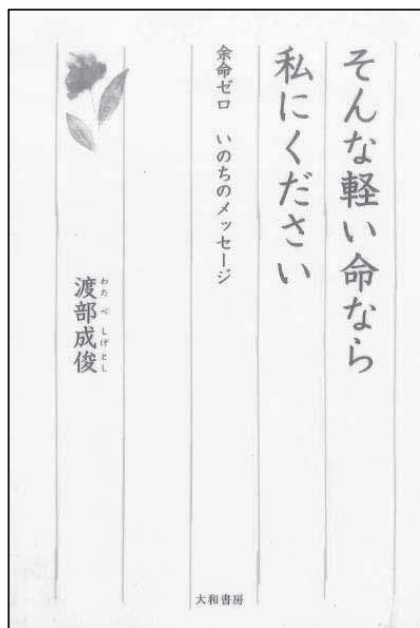 そんな軽い命なら
私にください
余命ゼロ　いのちのメッセージ
わたべしげとし
渡部成俊
大和書房